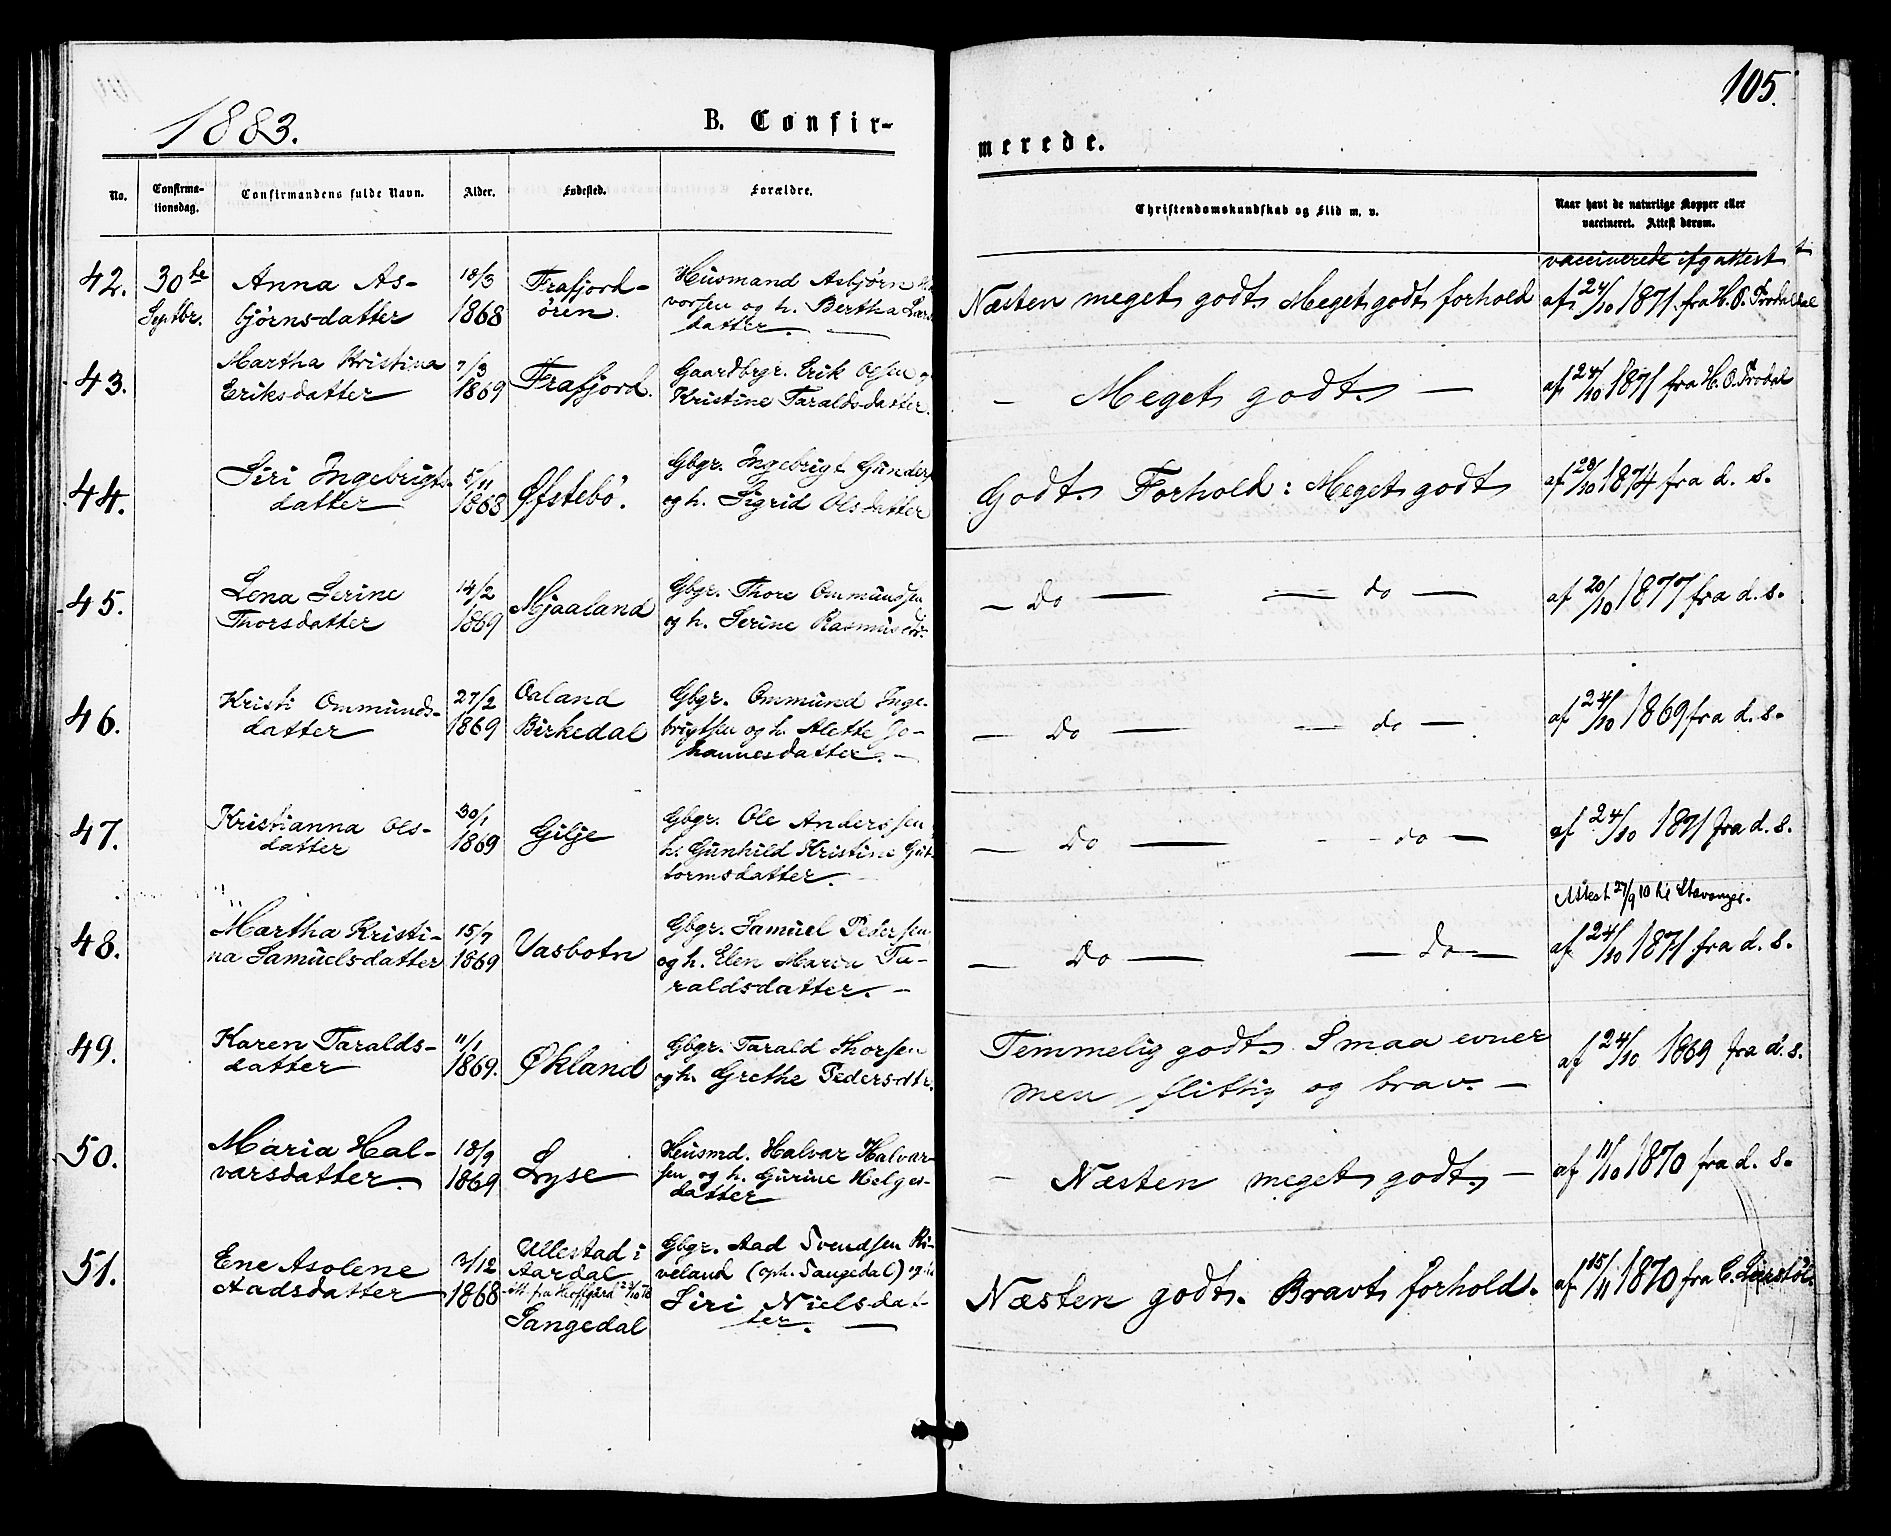 105.
1883.
B. Confir-
merede.
No.
Confirma-
tionsdag.
Confirmandens fulde Navn.
Alder.
Fødested.
Forældre.
Christendomskundskab og Flid m. v.
Naar havt de naturlige Kopper eller
vaccineret. Attest derom.
42.
30te
Septbr.
Anna As-
bjørnsdatter
18/3
1868
Frafjord-
ören
Husmand Asbjørn
vorsen og h. Bertha
datter.
Næsten meget godt. Meget godt forhold
vaccinerede ifg attest
af 24/10 1871. fra H. O. Trodahl
43.
Martha Kristina
Eriksdatter
7/3
1869
Frafjord.
Gaardbrgr. Erik Olsen
Kristine Taraldsdatter.
— Meget godt. —
af 24/10 1871 fra H. O. Trodal
44.
Siri Ingebrigts-
datter
5/11
1868
Øfstebö.
Gbgr. Ingebrigt Gunders
og h. Sigrid Olsdatter
Godt. Forhold: Meget godt
af 28/10 1874 fra d. s.
45.
Lena Serine
Thorsdatter
14/2
1869
Mjaaland
Gbgr. Thore Ommundsen
og h. Serine Rasmusdtr.
— Do — — do —
af 20/10 1877 fra d. s.
46.
Kristi Ommunds-
datter
27/2
1869
Oaland
Birkedal
Gbgr. Ommund Inge-
brigtsen og h. Alette Jo-
hannesdatter. —
— Do — — do —
af 24/10 1869 fra d. s.
47.
Kristianna Ols-
datter
30/1
1869
Gilje
Gbgr. Ole Anderssen
h. Gunhild Kristine Gut-
tormsdatter. —
— Do — - do —
af 24/10 1871 fra d. s.
48.
Martha Kristi-
na Samuelsdatter
15/7
1869
Vasbotn
Gbgr. Samuel Pedersen
og h. Elen Maria Ta-
raldsdatter. —
— Do — — do —
Attest 27/9 10 til Stavanger.
af 24/10 1871 fra d. s.
49.
Karen Taralds-
datter
11/1
1869.
Økland
Gbgr. Tarald Thorsen
og h. Grethe Pedersdtr.
Temmelig godt. Smaa evner
men flittig og brav. —
af 24/10 1869 fra d. s.
50.
Maria Hal-
varsdatter.
18/9
1869
Lyse
Husmd. Halvar Halvar-
sen og h. Gurine Helges-
datter
— Næsten meget godt. —
af 11/10 1870 fra d. s.
51.
Ene Asolene
Aadsdatter
3/12
1868
Ullestad i
Aardal
Sangedal
Gbgr. Aad Svendsen Ki-
veland (oph. Sangedal) og h
Siri Nielsdat-
ter. —
Næsten godt. Bravt forhold.
af 15/11 1870 fra C.